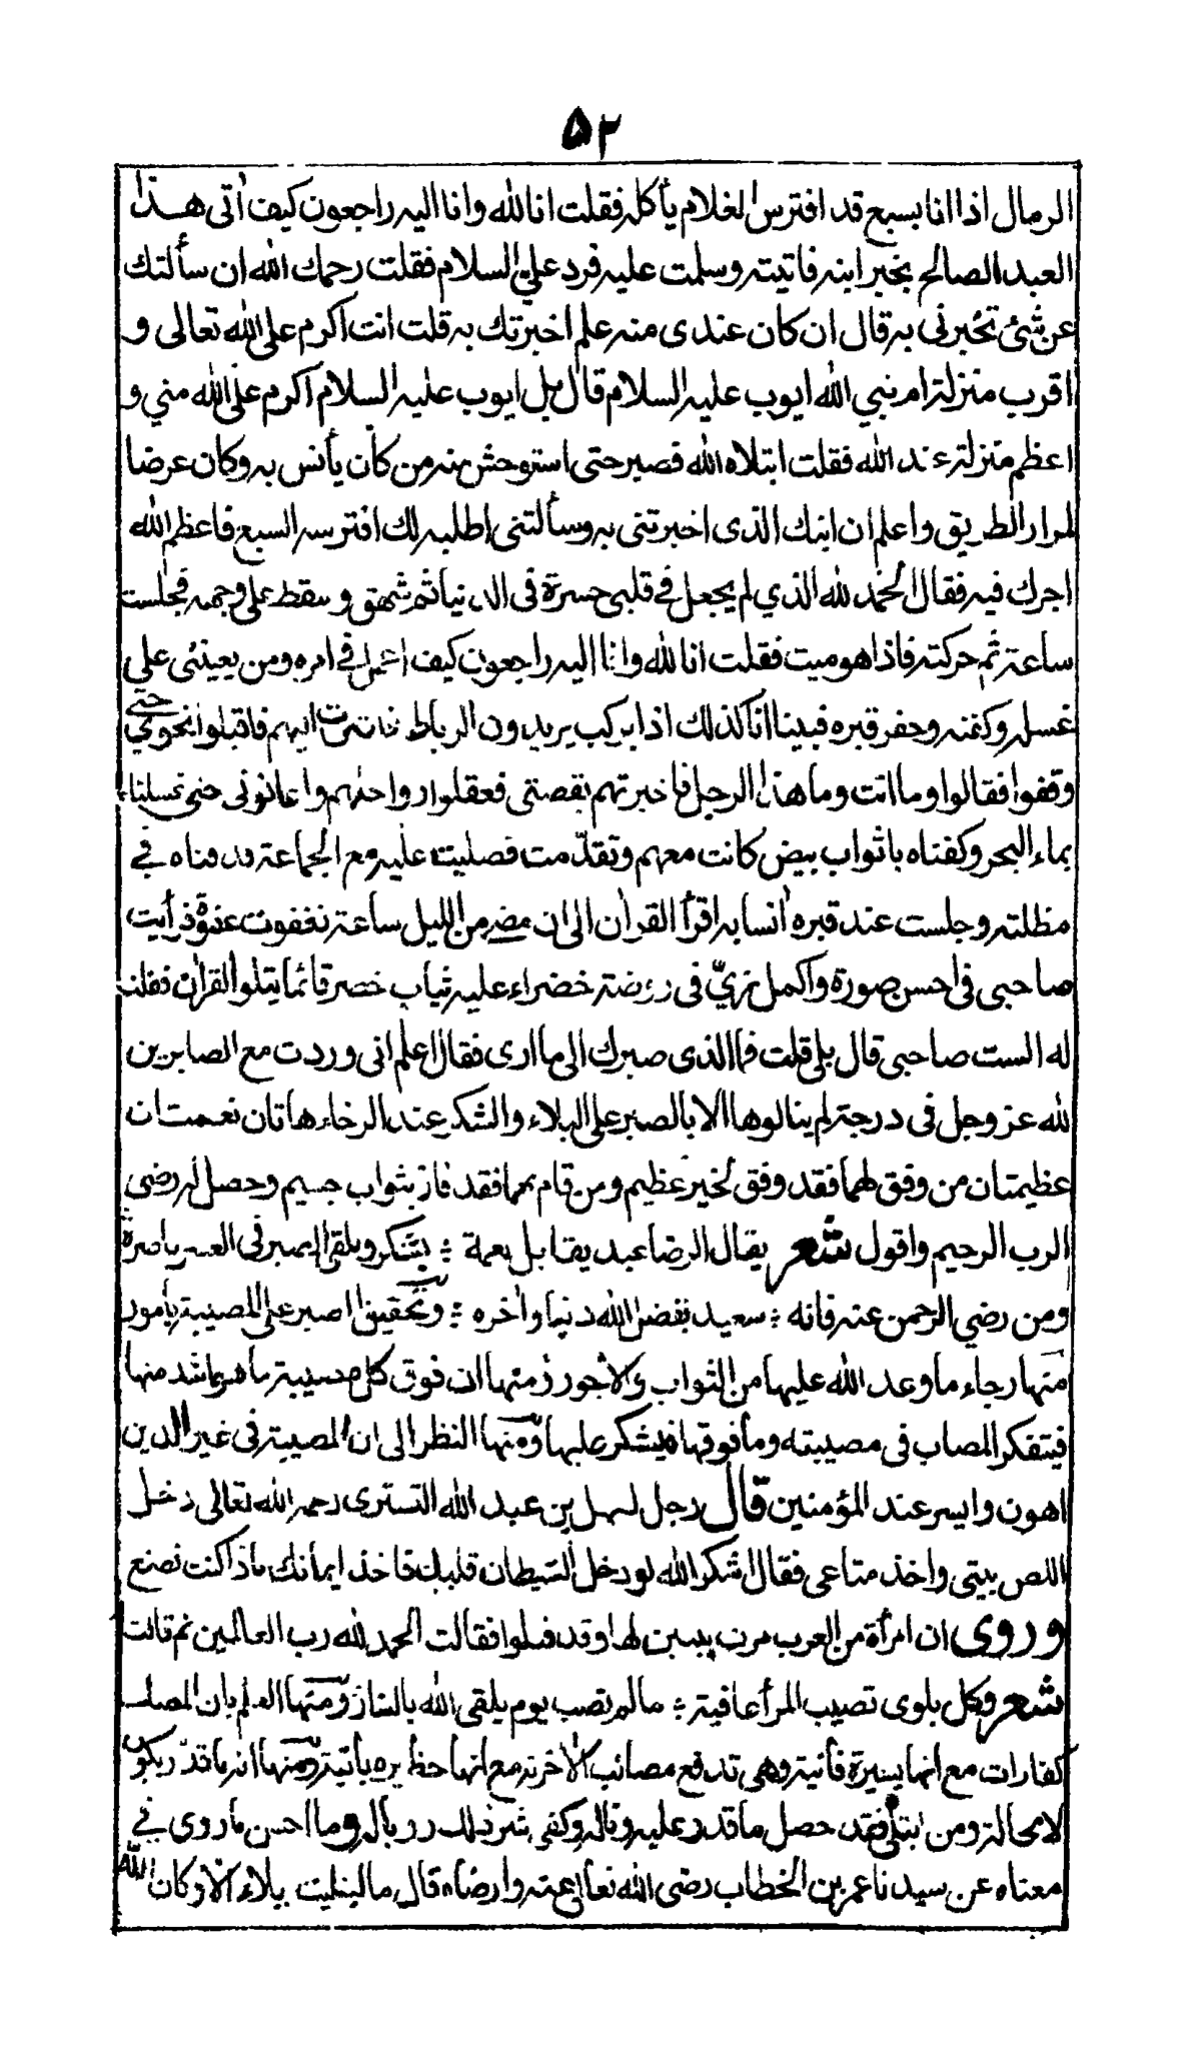 ۵۲
الرمال اذا انا بسبع قد افترس الغلام يأكله فقلت انا لله وانا اليه راجعون كيف أتى هذا
العبد الصالح بخبر ابنه فاتيته وسلمت عليه فرد علي السلام فقلت رحمك الله ان سألتك
عن شئ تخبرني به قال ان كان عندى منه علم اخبرتك به قلت انت اكرم على الله تعالى و
اقرب منزلة ام نبي الله ايوب عليه السلام قال بل ايوب عليه السلام اكرم على الله مني و
اعظم منزلة عند الله فقلت ابتلاه الله فصبر حتى استوحش منه من كان يأنس به وكان عرضا
لمرار الطريق واعلم ان ابنك الذى اخبرتنى به وسألتنى اطلبه لك افترسه السبع فاعظم الله
اجرك فيه فقال الحمد لله الذي لم يجعل في قلبى حسرة فى الدنيا ثم شهق وسقط على وجهه فجلست
ساعة ثم حركته فاذا هو ميت فقلت انا لله وانا اليه راجعون كيف اعمل في امره ومن يعيننى على
غسله وكفنه وحفر قبره فبينا انا كذلك اذا بركب يريدون الرباط فاشرت اليهم فاقبلوا نحوي حتى
وقفوا فقالوا وما انت وما هذا الرجل فاخبرتهم بقصتى فعقلوا رواحلهم واعانونى حتى غسلناه
بماء البحر وكفناه باثواب بيض كانت معهم وتقدّمت فصليت عليه مع الجماعة ودفناه في
مظلته وجلست عند قبره أنسا به اقرأ القرأن الى ان مضى من الليل ساعة فغفوت غفوة فرأيت
صاحبى فى احسن صورة واكمل زىّ فى روضة خضراء عليه ثياب خضر قائما يتلوا القرأن فقلت
له الست صاحبى قال بلى قلت فما الذى صيرك الى ما ارى فقال اعلم انى وردت مع الصابرين
لله عز وجل فى درجة لم ينالوها الا بالصبر على البلاء والشكر عند الرخاء هاتان نعمتان
عظيمتان من وفق لهما فقد وفق لخير عظيم ومن قام بهما فقد فاز بثواب جسيم وحصل له رضي
الرب الرحيم واقول شعر يقال الرضا عبد يقابل نعمة ؛ بشكر ويلقى الصبر فى العسر ياصرة
ومن رضي الرحمن عنه فانه ؛ سعيد بفضل الله دنيا وأخره ؛ وتحقيق الصبر على المصيبة بأمور
منها رجاء ما وعد الله عليها من الثواب والأجور ومنها ان فوق كل مصيبة ما هو اشد منها
فيتفكر المصاب فى مصيبته وما فوقها فيشكر عليها ومنها النظر الى ان المصيبة فى غير الدين
اهون وايسر عند المؤمنين قال رجل لسهل بن عبد الله التسترى رحمه الله تعالى دخل
اللص بيتى واخذ متاعى فقال اشكر الله لو دخل الشيطان قلبك فاخذ ايمانك ماذا كنت تصنع
وروى ان امرأة من العرب مرت ببنين لها وقد قتلوا فقالت الحمد لله رب العالمين ثم قالت
شعر وكل بلوى تصيب المرأ عافية ؛ ما لم تصب يوم يلقى الله بالنار ومنها العلم بان المصائب
كفارات مع انها يسيرة فانية وهى تدفع مصائب الأخرة مع انها باتية ومنها ان ما قدّر يكون
لا محالة ومن ابتلى فقد حصل ما قدر عليه وناله وكفى وما احسن ما روى في
معناه عن سيدنا عمر بن الخطاب رضى الله تعالى عنه وارضاه قال ما ابتليت ببلاء الا وكان لله